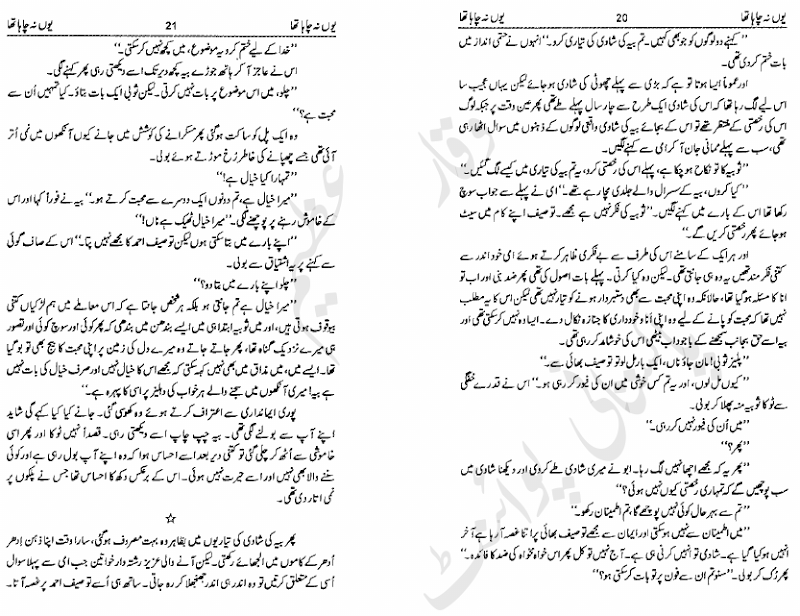 یوں نہ چاہا تھا 20 یوں نہ چاہا تھا
’’کہنے دو لوگوں کو جو بھی کہیں۔ تم بیہ کی شادی کی تیاری کرو۔‘‘ انہوں نے حتمی انداز میں
بات ختم کر دی تھی۔
اور عموماً ایسا ہوتا تو ہے کہ بڑی سے پہلے چھوٹی کی شادی ہو جائے لیکن یہاں عجیب سا
اس لیے لگ رہا تھا کہ اس کی شادی ایک طرح سے چار سال پہلے طے تھی پھر عین وقت پر جبکہ لوگ
اس کی رخصتی کے منتظر تھے تو اس کے بجائے بیہ کی شادی واقعی لوگوں کے ذہنوں میں سوال اٹھا رہی
تھی، سب سے پہلے ممانی جان آ کر امی سے کہنے لگیں۔
’’ثوبیہ کا تو نکاح ہو چکا ہے، پہلے اس کی رخصتی کرو، یہ تم بیہ کی تیاری میں کیسے لگ گئیں۔‘‘
’’کیا کروں، بیہ کے سسرال والے جلدی مچا رہے تھے۔‘‘ امی نے پہلے سے جواب سوچ
رکھا تھا اس کے بارے میں کہنے لگیں۔ ’’ثوبیہ کی فکر نہیں ہے مجھے۔ توصیف اپنے کام میں سیٹ
ہو جائے پھر رخصتی کریں گے۔‘‘
اور ہر ایک کے سامنے اس کی طرف سے بے فکری ظاہر کرتے ہوئے امی خود اندر سے
کتنی فکر مند تھیں یہ وہ ہی جانتی تھی۔ لیکن وہ کیا کرتی۔ پہلے بات اصول کی تھی پھر ضد بنی اور اب تو
انا کا مسئلہ ہو گیا تھا، حالانکہ وہ اپنی محبت سے بھی دستبردار ہونے کو تیار نہیں تھی لیکن اس کا یہ مطلب
نہیں تھا کہ محبت کو پانے کے لیے وہ اپنی انا و خودداری کا جنازہ نکال دے۔ ایسا وہ نہیں کر سکتی تھی اور
بیہ اسے حق بجانب سمجھنے کے باوجود اب بیٹھی اس کی خوشامد کر رہی تھی۔
’’پلیز ثوبی! مان جاؤ ناں، ایک بار مل لو تو توصیف بھائی سے۔‘‘
’’کیوں مل لوں، اور یہ تم کس خوشی میں ان کی فیور کر رہی ہو۔‘‘ اس نے قدرے خفگی
سے ٹوکا تو بیہ منہ پھلا کر بولی۔
’’میں اُن کی فیور نہیں کر رہی۔‘‘
’’پھر؟‘‘
’’پھر یہ کہ مجھے اچھا نہیں لگ رہا۔ ابو نے میری شادی طے کر دی اور دیکھنا شادی میں
سب پوچھیں گے کہ تمہاری رخصتی کیوں نہیں ہوئی؟‘‘
’’تم سے بہر حال کوئی نہیں پوچھے گا، تم اطمینان رکھو۔‘‘
’’میں اطمینان سے نہیں ہو سکتی اور ایمان سے مجھے توصیف بھائی پر اتنا غصہ آ رہا ہے آخر
انہیں ہو کیا گیا ہے۔ شادی تو انہیں کرنی ہی ہے۔ آج نہیں تو کل پھر اس خواہ مخواہ کی ضد کا فائدہ۔‘‘
پھر رک کر بولی۔ ’’سنو تم ان سے فون پر تو بات کر سکتی ہو؟‘‘
یوں نہ چاہا تھا 21 یوں نہ چاہا تھا
’’خدا کے لیے ختم کرو یہ موضوع، میں کچھ نہیں کر سکتی۔‘‘
اس نے عاجز آ کر ہاتھ جوڑے بیہ کچھ دیر تک اسے دیکھتی رہی پھر کہنے لگی۔
’’چلو، میں اس موضوع پر بات نہیں کرتی۔ لیکن ثوبی ایک بات بتاؤ۔ کیا تمہیں اُن سے
محبت ہے؟‘‘
وہ ایک پل کو ساکت ہو گئی پھر مسکرانے کی کوشش میں جانے کیوں آنکھوں میں نمی اُتر
آئی تھی جسے چھپانے کی خاطر رخ موڑتے ہوئے بولی۔
’’تمہارا کیا خیال ہے!‘‘
’’میرا خیال ہے، تم دونوں ایک دوسرے سے محبت کرتے ہو۔‘‘ بیہ نے فوراً کہا اور اس
کے خاموش رہنے پر پوچھنے لگی۔ ’’میرا خیال ٹھیک ہے ناں!‘‘
’’اپنے بارے میں بتا سکتی ہوں لیکن توصیف احمد کا مجھے نہیں پتا۔‘‘ اس کے صاف گوئی
سے کہنے پر بیہ اشتیاق سے بولی۔
’’چلو اپنے بارے میں بتا دو؟‘‘
’’میرا خیال ہے تم جانتی ہو بلکہ ہر شخص جانتا ہے کہ اس معاملے میں ہم لڑکیاں کتنی
بیوقوف ہوتی ہیں، اور میں تو بیہ ابتدا ہی میں ایسے بندھن میں بندھی کہ پھر کوئی اور سوچ کوئی اور تصور
ہی میرے نزدیک گناہ تھا، پھر جاتے جاتے وہ میرے دل کی زمین پر اپنی محبت کا بیج بھی تو بو گیا
تھا۔ ایسے میں، میں مذاق میں بھی نہیں کہہ سکتی کہ مجھے اس کا خیال نہیں اور صرف خیال کی بات نہیں
ہے بیہ! میری آنکھوں میں سجنے والے ہر خواب کی دہلیز پر اسی کا پہرہ ہے۔‘‘
پوری ایمانداری سے اعتراف کرتے ہوئے وہ کھو سی گئی۔ جانے کیا کیا کہے گی شاید
اپنے آپ سے بولنے لگی تھی۔ بیہ چپ چاپ اسے دیکھتی رہی۔ قصداً نہیں ٹوکا اور پھر اسی
خاموشی سے اُٹھ کر چلی گئی تو کتنی دیر بعد اسے احساس ہوا کہ وہ اپنے آپ بول رہی ہے اور کوئی
سننے والا بھی نہیں اور اسے حیرت نہیں ہوئی۔ اس کے برعکس دکھ کا احساس تھا جس نے پلکوں پر
نمی اتار دی تھی۔
☆
پھر بیہ کی شادی کی تیاریوں میں بظاہر وہ بہت مصروف ہو گئی، سارا وقت اپنا ذہن اِدھر
اُدھر کے کاموں میں الجھائے رکھتی۔ لیکن آنے والی عزیز رشتہ دار خواتین جب امی سے پہلا سوال
اُسی کے متعلق کرتیں تو وہ اندر ہی اندر جھنجھلا کر رہ جاتی۔ ساتھ ہی اُسے توصیف احمد پر غصہ آتا۔